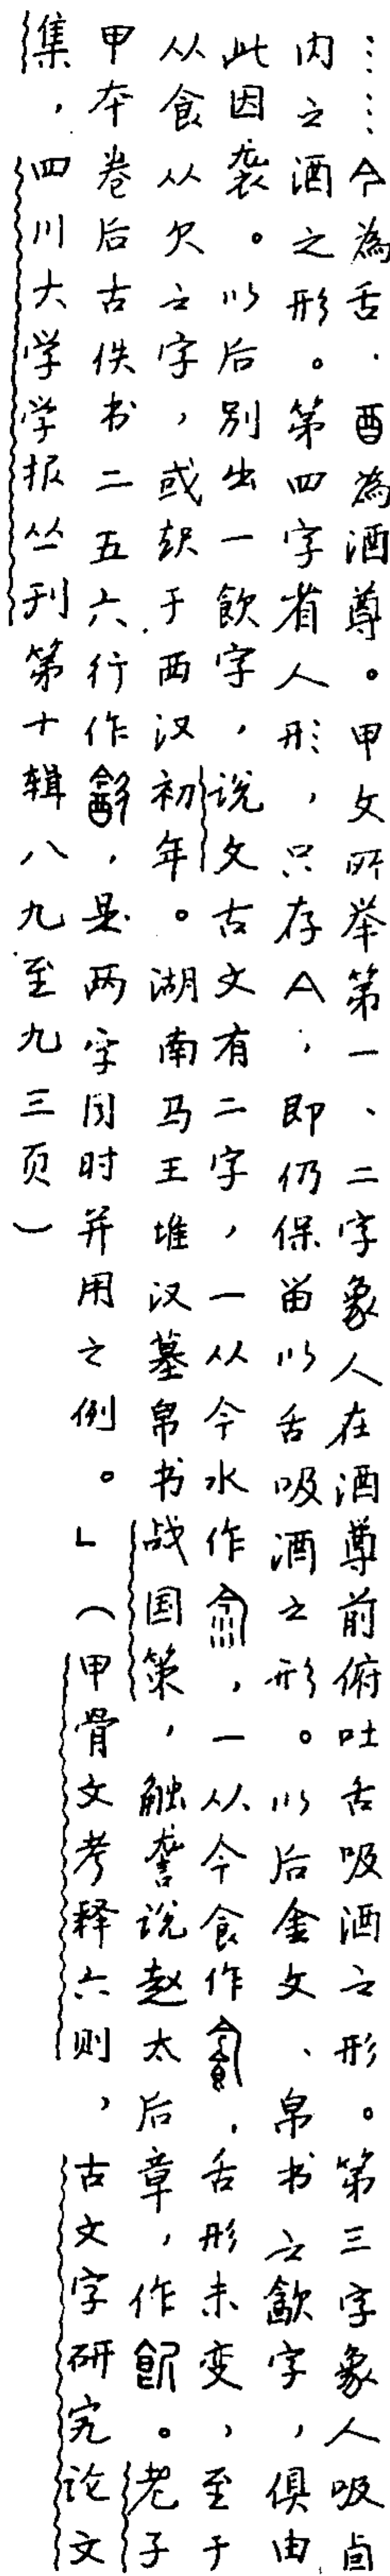 ……亼為舌，酉為酒尊。甲文所举第一、二字象人在酒尊前俯吐舌吸酒之形。第三字象人吸卣
内之酒之形。第四字省人形，只存亼，即仍保留以舌吸酒之形。以后金文、帛书之歙字，俱由
此因袭。以后别出一飲字，说文古文有二字，一从今水作㱃，一从今食作，舌形未变，至于
从食从欠之字，或起于西汉初年。湖南马王堆汉墓帛书战国策，触詟说赵太后章，作飲。老子
甲本卷后古佚书二五六行作㱃，是两字同时并用之例。」（甲骨文考释六则，古文字研究论文
集，四川大学学报丛刊第十辑八九至九三页）